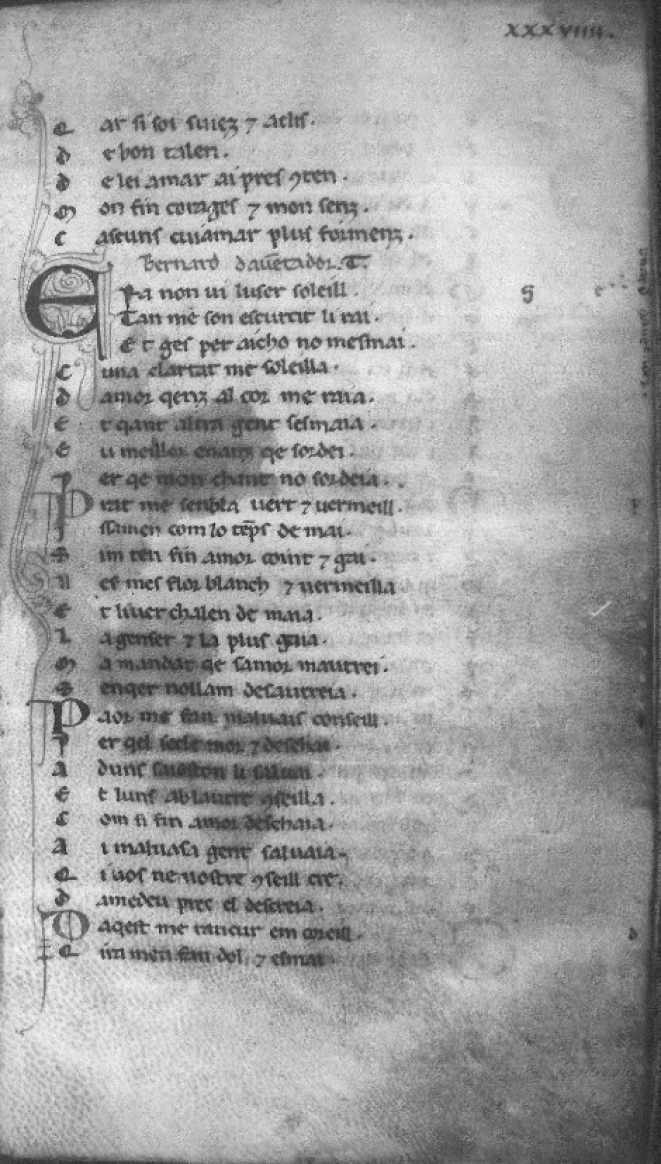 xxxviiii.
Q ar si soi suiez ⁊ aclis.
D e bon talen.
D e lei amar ai pres ꝯten.
M on fin corages ⁊ mon senz.
C ascuns cuiamar plus formenz.
Bernard daue̅tador. T.
E Ra non ui luser soleill.
Tan me son escurcit li rai.
E t ges per aicho no mesmai.
C una clartat me soleilla.
D amor qenz al cor me raia.
E t qant altra gent sesmaia.
E u meillor enanz qe sordei.
P er qe mon chant no sordeia.
P rat me senbla uert ⁊ uermeill.
com lo te̅ps de mai.
S im ten fin amor coint ⁊ gai.
N es mes flor blanch ⁊ uermeilla
E t liuer chalen de maia.
L agenser ⁊ la plus gaia.
M a mandat qe samor mautrei.
S enqer nollam desautreia.
P aor me fan maluais conseill.
P er qel secle mor ⁊ deschai.
A duns saioston li saluai.
E t luns ab lautre ꝯseilla.
C om si fin amor deschaia.
A i maluasa gent saluaia.
Q i uos ne uostre ꝯseill cre.
D amedeu prec el descreia.
D aqest me rancur em coreill.
Q ira men fan dol ⁊ esmai